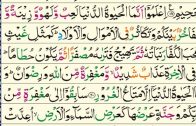 الْجَحِيْمِ اِعْلَمُوْۤا اَنَّمَا الْحَيٰوةُ الدُّنْيَا لَعِبٌ وَّ لَهْوٌ وَّ زِيْنَةٌ وَّ
تَفَاخُرٌۢ بَيْنَكُمْ وَ تَكَاثُرٌ فِی الْاَمْوَالِ وَ الْاَوْلَادِ كَمَثَلِ غَيْثٍ
اَعْجَبَ الْكُفَّارَ نَبَاتُهٗ ثُمَّ يَهِيْجُ فَتَرٰىهُ مُصْفَرًّا ثُمَّ يَكُوْنُ حُطَامًا وَ
فِی الْاٰخِرَةِ عَذَابٌ شَدِيْدٌ وَّ مَغْفِرَةٌ مِّنَ اللّٰهِ وَ رِضْوَانٌ وَ مَا
الْحَيٰوةُ الدُّنْيَاۤ اِلَّا مَتَاعُ الْغُرُوْرِ سَابِقُوْۤا اِلٰى مَغْفِرَةٍ مِّنْ
رَّبِّكُمْ وَ جَنَّةٍ عَرْضُهَا كَعَرْضِ السَّمَآءِ وَ الْاَرْضِ اُعِدَّتْ